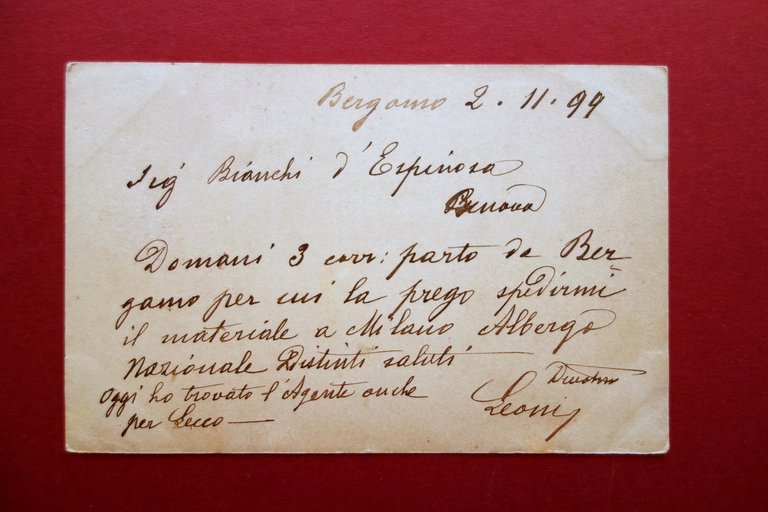 Bergamo 2. 11. 99
Sig Bianchi d'Espinosa
Genova
Domani 3 corr: parto da Ber-
gamo per cui la prego spedirmi
il materiale a Milano Albergo
Nazionale Distinti saluti
Oggi ho trovato l'Agente anche
per Lecco —
Devotmo
Leoni